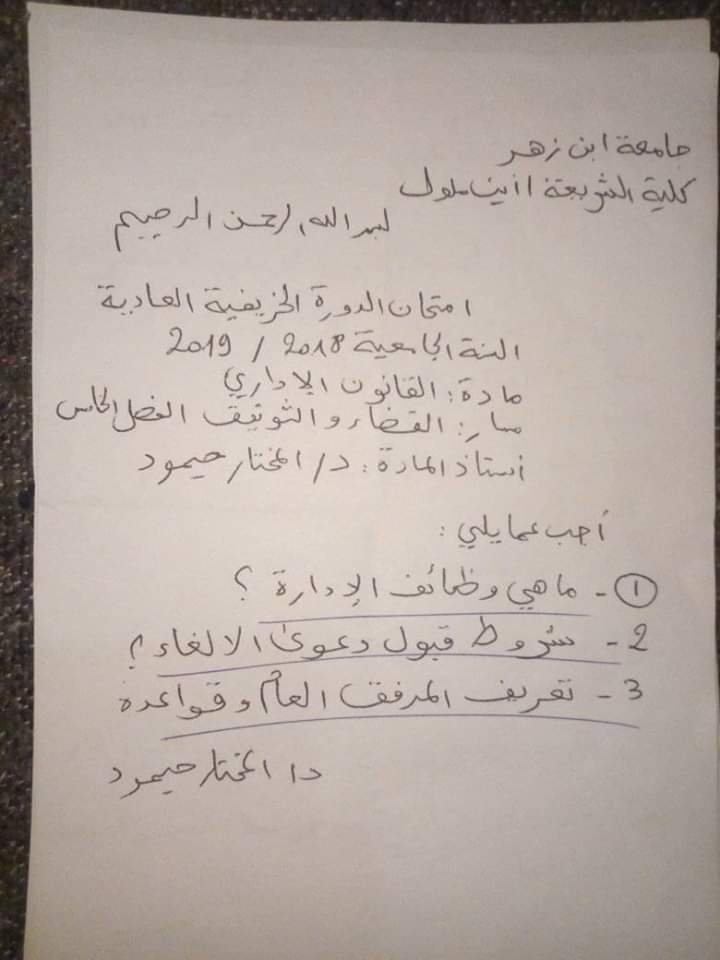 جامعة ابن زهر
كلية الشريعة أيت ملول
بسم الله الرحمن الرحيم
امتحان الدورة الخريفية العادية
السنة الجامعية 2018 / 2019
مادة: القانون الإداري
مسار: القضاء والتوثيق الفصل الخامس
أستاذ المادة: د/ المختار حيمود
أجب عما يلي:
① - ما هي وظائف الإدارة؟
2 - شروط قبول دعوى الالغاء؟
3 - تعريف المرفق العام وقواعده
د/ المختار حيمود